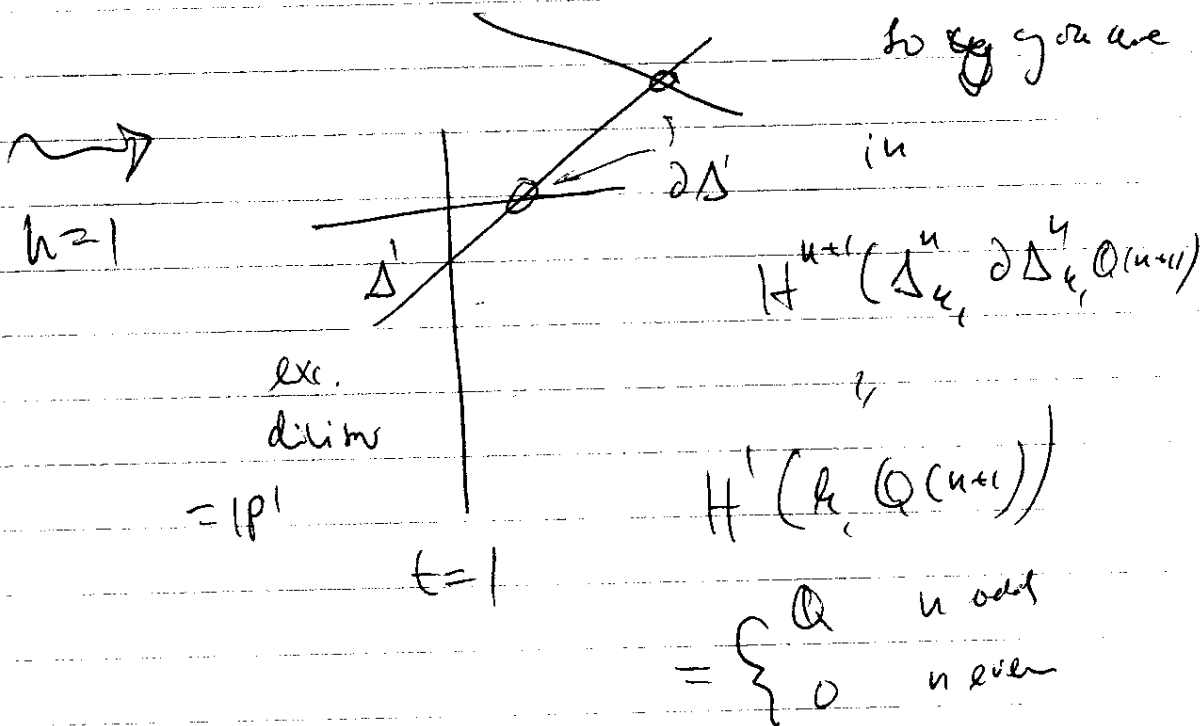 so you are
in
n=1
∂Δ'
Δ'
H^{n+1}(Δ^n_k, ∂Δ^n_k, Q(n+1))
exc.
H^1(k, Q(n+1))
= P^1
t=1
= { Q n odd
0 n even